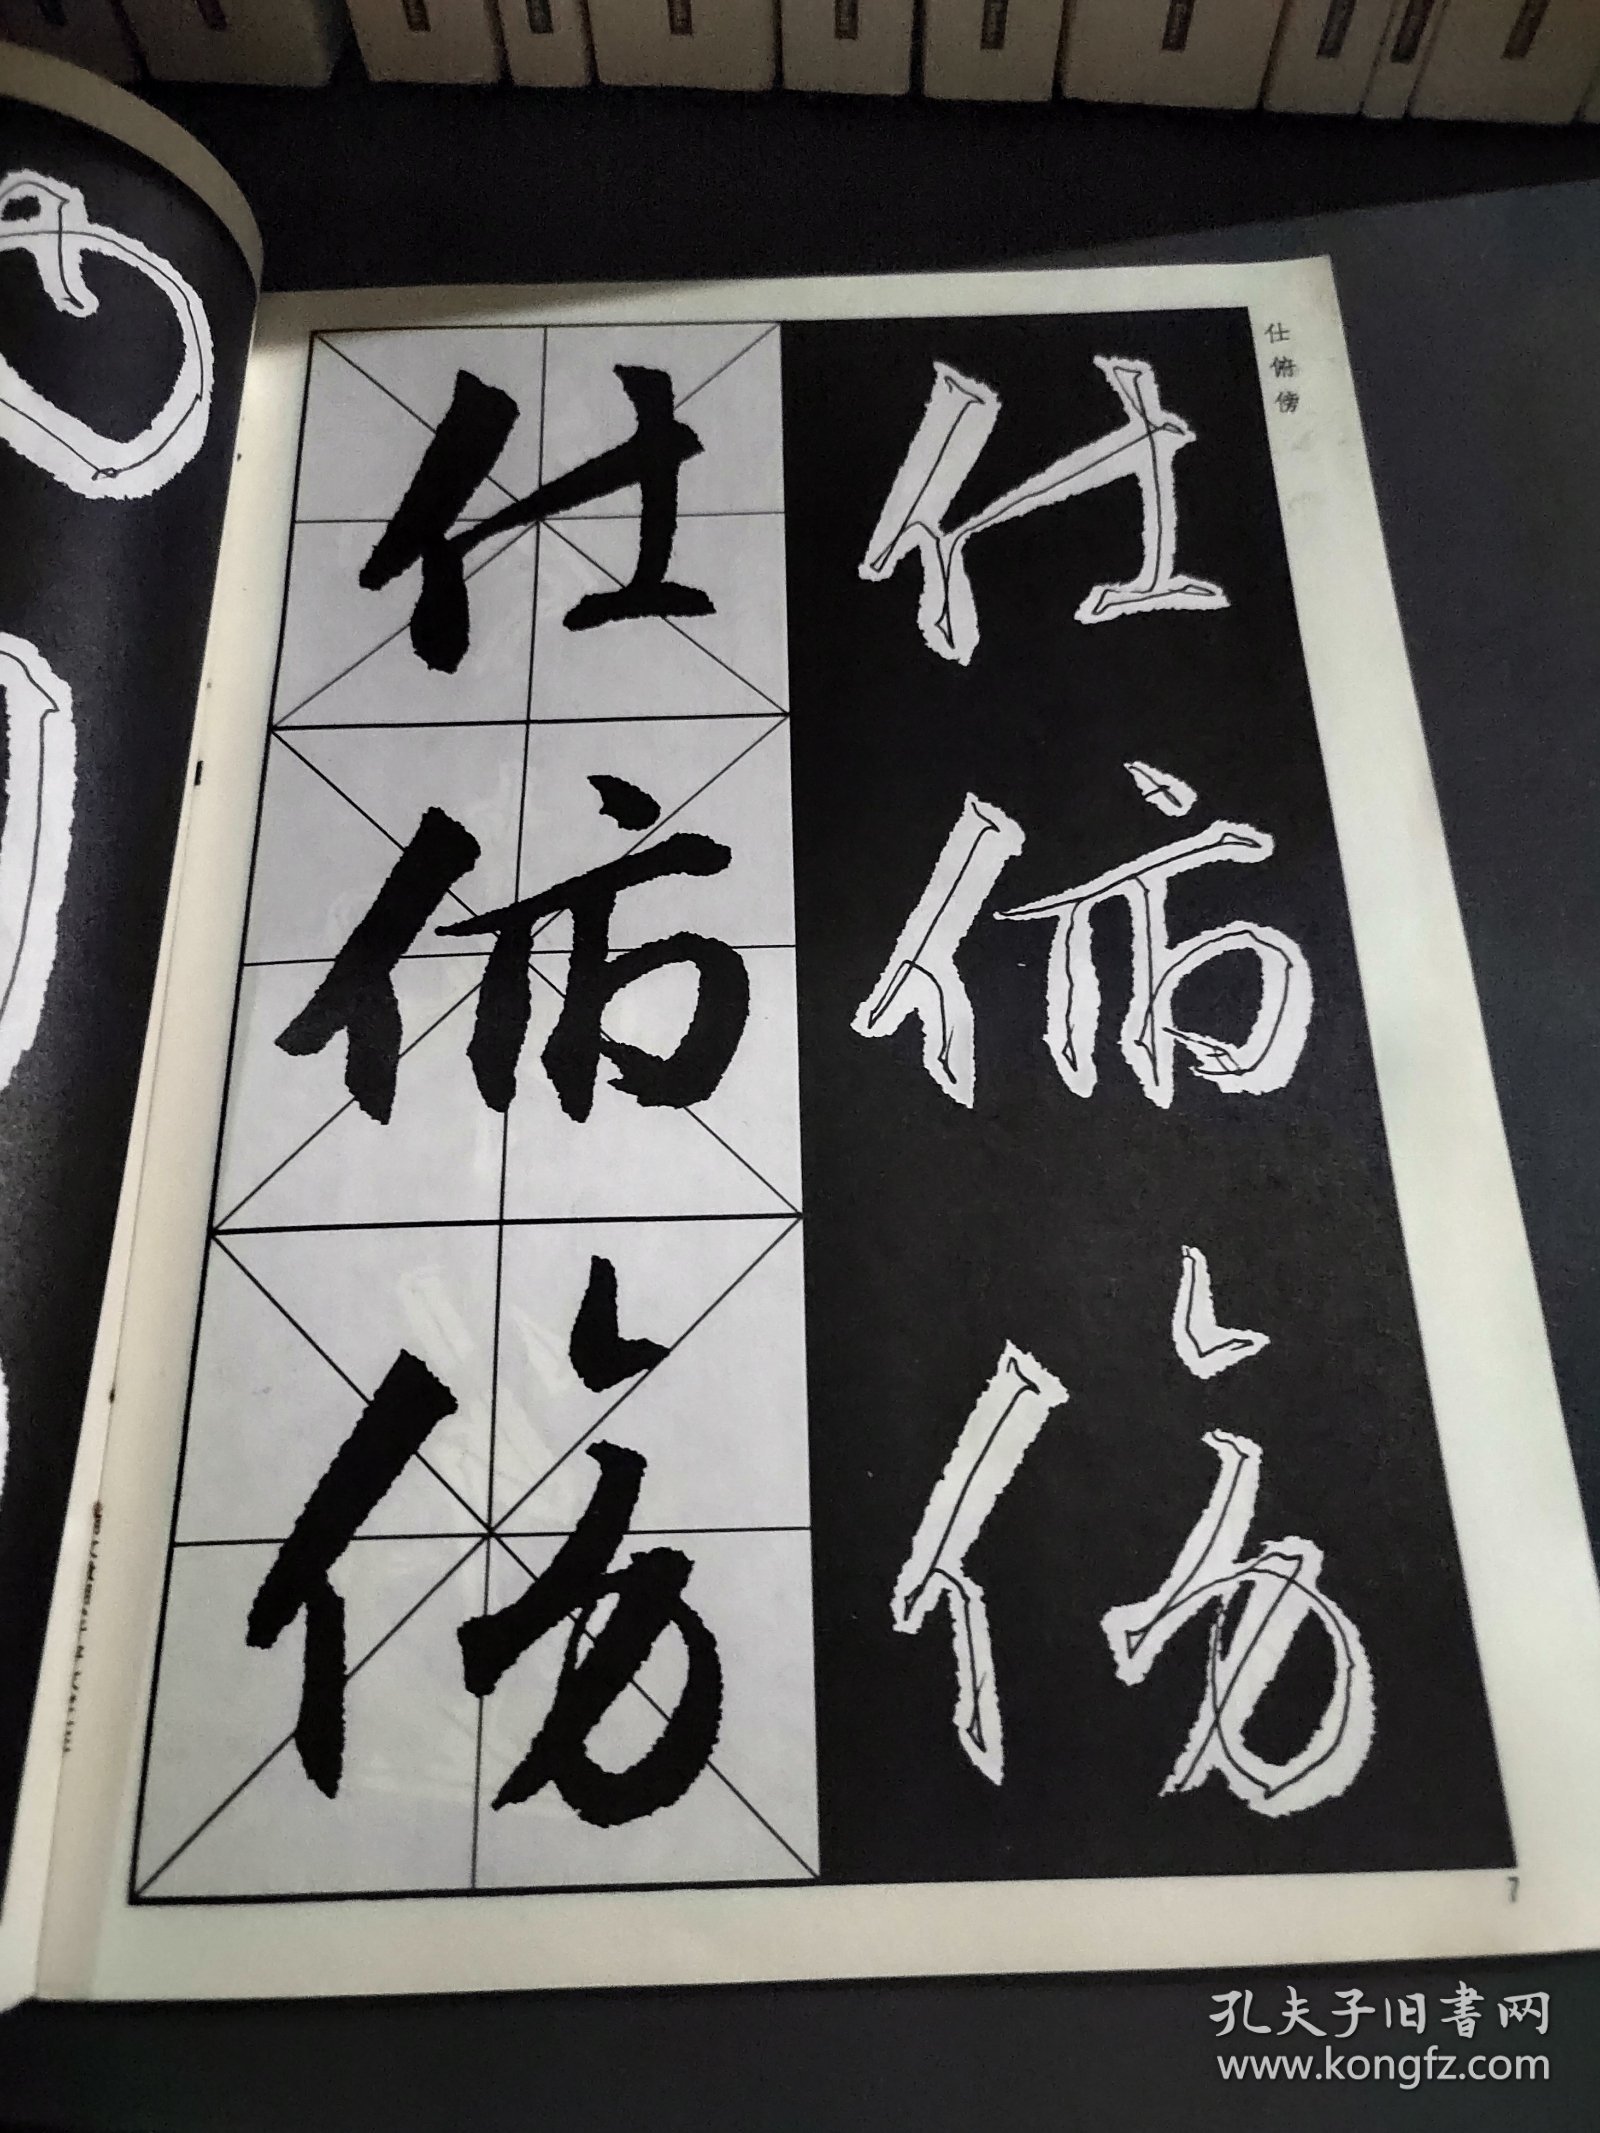 仕
俯
傍
仕
俯
傍
仕俯傍
7
孔夫子旧書网
www.kongfz.com